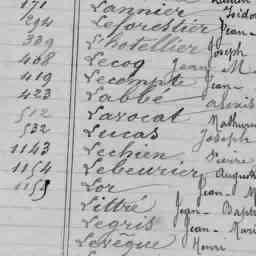 171 Lannier
294 Leforestier Jean-
339 Lhotellier Joseph
408 Lecoq Jean M
419 Lecompte Jean-
423 Labbé Alexis
512 Lavocat Mathurin
532 Lucas Joseph
1143 Lechien Pierre
1154 Lebeurier August
1155 Lor Jean-M
Littré Jean-Bapt
Legris Jean-Mari
Levêque Henri